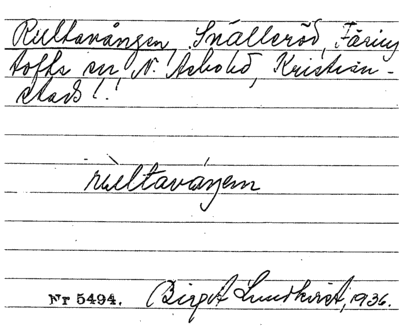 Rultavången, Snälleröd, Färing
tofta sn, N. Åsbo hd, Kristian-
stads l.
rueltaváŋem
Nr 5494. Birgit Lundkvist, 1936.